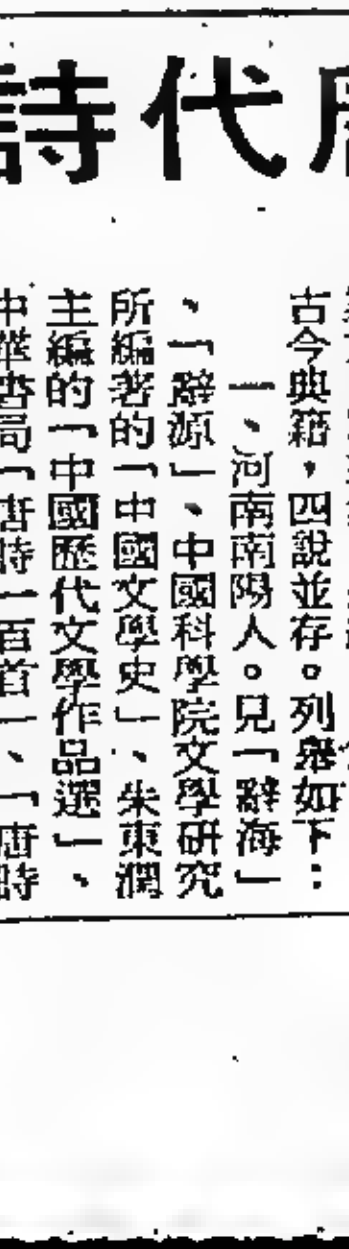 代詩
古今典籍，四說並存。列舉如下：
一、河南南陽人。見「辭海」
、「辭源」、中國科學院文學研究
所編著的「中國文學史」、朱東潤
主編的「中國歷代文學作品選」、
中華書局「唐詩一百首」、「唐詩